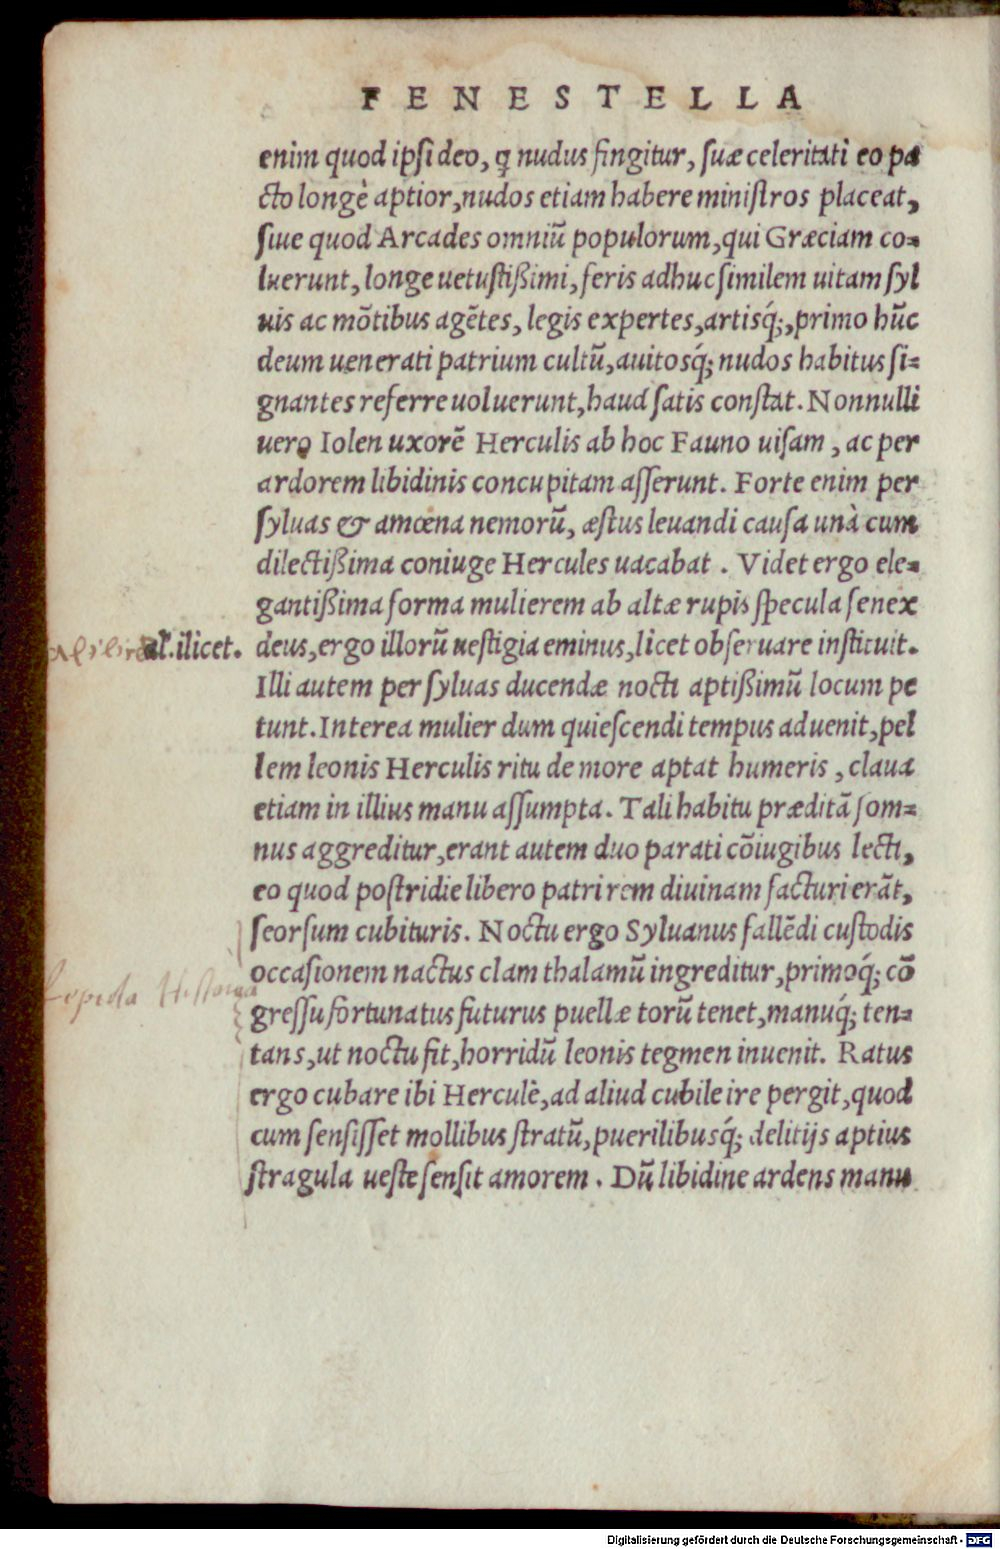 FENESTELLA
enim quod ipsi deo, ꝗ nudus fingitur, suæ celeritati eo pa
cto longè aptior, nudos etiam habere ministros placeat,
siue quod Arcades omniũ populorum, qui Græciam co-
luerunt, longe uetustißimi, feris adhuc similem uitam syl
uis ac mõtibus agẽtes, legis expertes, artisq́;, primo hũc
deum uenerati patrium cultũ, auitosq́; nudos habitus si-
gnantes referre uoluerunt, haud satis constat. Nonnulli
uero Iolen uxorẽ Herculis ab hoc Fauno uisam, ac per
ardorem libidinis concupitam asserunt. Forte enim per
syluas & amœna nemorũ, æstus leuandi causa unà cum
dilectißima coniuge Hercules uacabat. Videt ergo ele-
gantißima forma mulierem ab altæ rupis specula senex
al. ilicet. deus, ergo illorũ uestigia eminus, licet obseruare instituit.
Illi autem per syluas ducendæ nocti aptißimũ locum pe
tunt. Interea mulier dum quiescendi tempus aduenit, pel
lem leonis Herculis ritu de more aptat humeris, claua
etiam in illius manu assumpta. Tali habitu præditã som-
nus aggreditur, erant autem duo parati cõiugibus lecti,
eo quod postridie libero patri rem diuinam facturi erãt,
seorsum cubituris. Noctu ergo Syluanus fallẽdi custodis
occasionem nactus clam thalamũ ingreditur, primoq́; cõ
Lepida Historia
gressu fortunatus futurus puellæ torũ tenet, manuq́; ten-
tans, ut noctu fit, horridũ leonis tegmen inuenit. Ratus
ergo cubare ibi Herculẽ, ad aliud cubile ire pergit, quod
cum sensisset mollibus stratũ, puerilibusq́; delitijs aptius
stragula ueste sensit amorem. Dũ libidine ardens manu
Digitalisierung gefördert durch die Deutsche Forschungsgemeinschaft - DFG